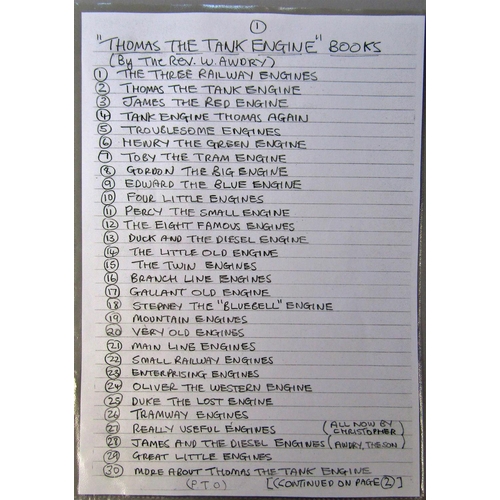 ①
"THOMAS THE TANK ENGINE" BOOKS
(By The REV. W. AWDRY)
① THE THREE RAILWAY ENGINES
② THOMAS THE TANK ENGINE
③ JAMES THE RED ENGINE
④ TANK ENGINE THOMAS AGAIN
⑤ TROUBLESOME ENGINES
⑥ HENRY THE GREEN ENGINE
⑦ TOBY THE TRAM ENGINE
⑧ GORDON THE BIG ENGINE
⑨ EDWARD THE BLUE ENGINE
⑩ FOUR LITTLE ENGINES
⑪ PERCY THE SMALL ENGINE
⑫ THE EIGHT FAMOUS ENGINES
⑬ DUCK AND THE DIESEL ENGINE
⑭ THE LITTLE OLD ENGINE
⑮ THE TWIN ENGINES
⑯ BRANCH LINE ENGINES
⑰ GALLANT OLD ENGINE
⑱ STEPNEY THE "BLUEBELL" ENGINE
⑲ MOUNTAIN ENGINES
⑳ VERY OLD ENGINES
㉑ MAIN LINE ENGINES
㉒ SMALL RAILWAY ENGINES
㉓ ENTERPRISING ENGINES
㉔ OLIVER THE WESTERN ENGINE
㉕ DUKE THE LOST ENGINE
㉖ TRAMWAY ENGINES
㉗ REALLY USEFUL ENGINES (ALL NOW BY CHRISTOPHER)
㉘ JAMES AND THE DIESEL ENGINES (AWDRY, THE SON)
㉙ GREAT LITTLE ENGINES
㉚ MORE ABOUT THOMAS THE TANK ENGINE
(P.T.O) [(CONTINUED ON PAGE ②)]